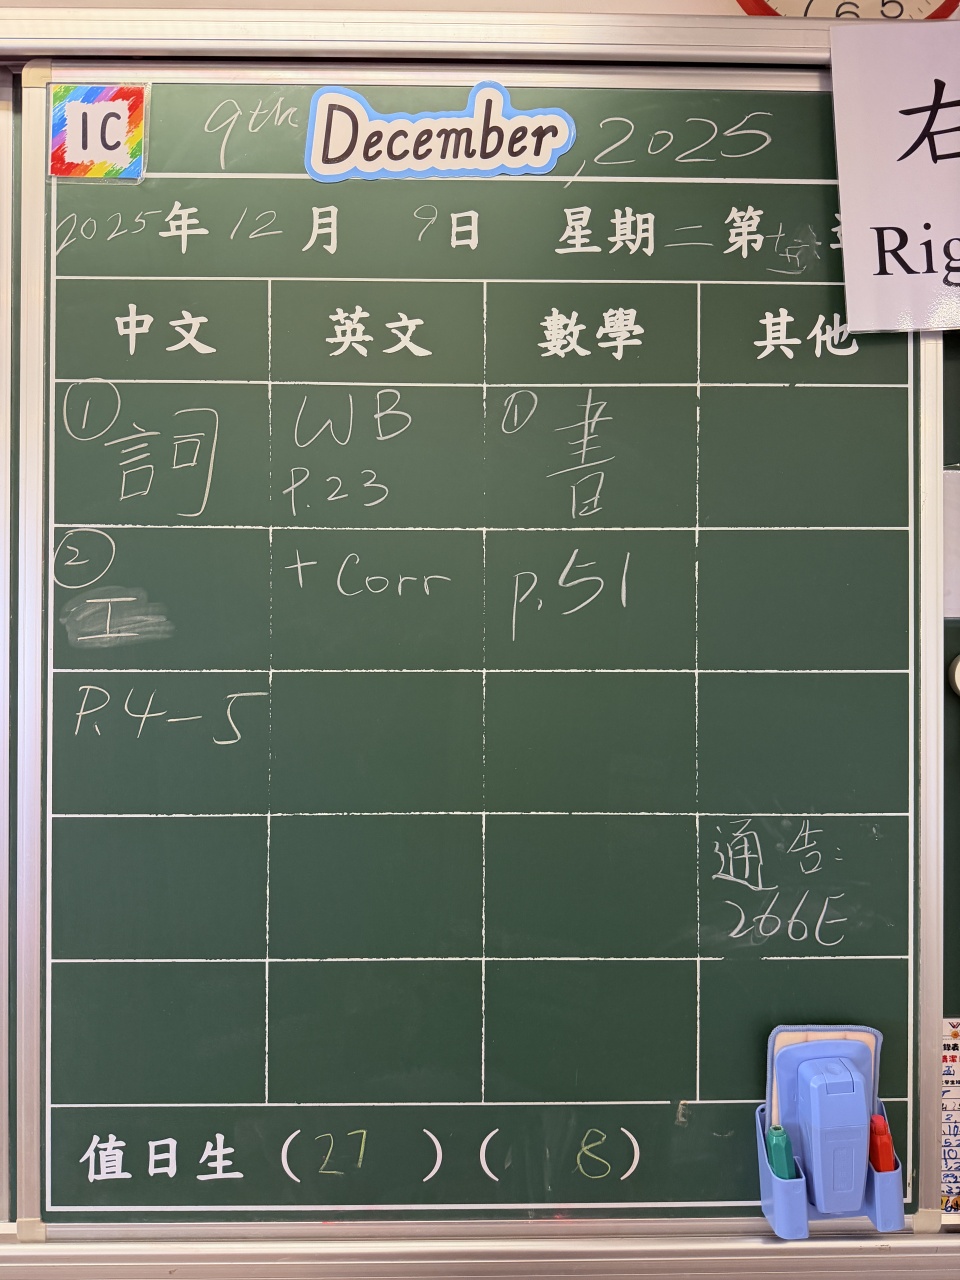 1C 9th December, 2025
2025年 12月 9日 星期二 第十五
中文 英文 數學 其他
① 詞
WB
P.23
① 書
②
工
+ Corr
p.51
P.4-5
通告:
266E
值日生 (27) (8)
右
Rig
6 5